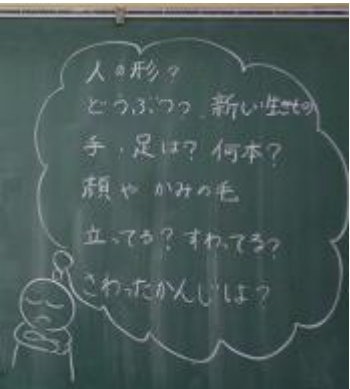 人の形?
どうぶつ?新しい生きもの
手、足は?何本?
顔やかみの毛
立ってる?すわってる?
さわったかんじは?